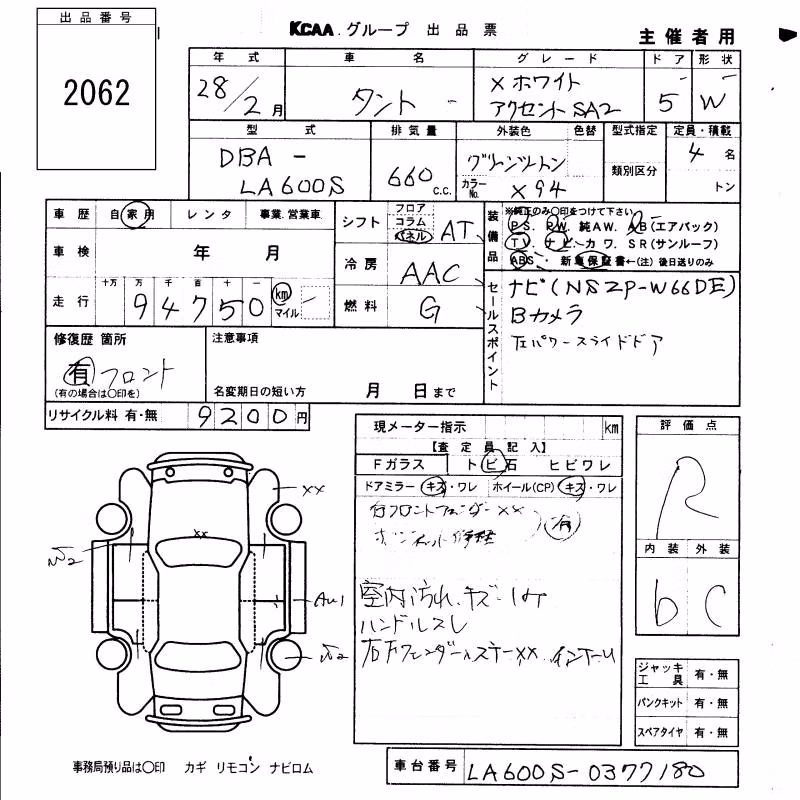 出品番号
2062
KCAA グループ 出品票
主催者用
年式 車名 グレード ドア 形状
28/2月 タント - Xホワイト アクセントSA2 5 W
型式 排気量 外装色 色替 型式指定 定員・積載
DBA - LA600S 660 c.c. グリーンツートン 類別区分 4名
カラーNo. X94 トン
車歴 自家用 レンタ 事業.営業車
シフト フロア コラム パネル AT
装備品 ※純正のみ〇印をつけて下さい
PS. PW. 純AW. AB(エアバック)
TV. ナビ. カワ. SR(サンルーフ)
ABS・新車保証書←(注)後日送りのみ
車検 年 月
冷房 AAC
走行 十万 万 千 百 十 一
94750 km マイル
燃料 G
セールスポイント
ナビ(NSZP-W66DE)
Bカメラ
左パワースライドドア
修復歴 箇所
有 フロント
(有の場合は〇印を)
注意事項
名変期日の短い方 月 日まで
リサイクル料 有・無 9200円
現メーター指示 km
【査定員記入】
Fガラス トビ石 ヒビワレ
ドアミラー キズ・ワレ ホイール(CP) キズ・ワレ
右フロントフェンダーxx
有
室内汚れ、キズ
ハンドルスレ
評価点
R
内装 外装
b C
xx
xx
ジャッキ工具 有・無
パンクキット 有・無
スペアタイヤ 有・無
事務局預り品は〇印 カギ リモコン ナビロム
車台番号 LA600S-0377180